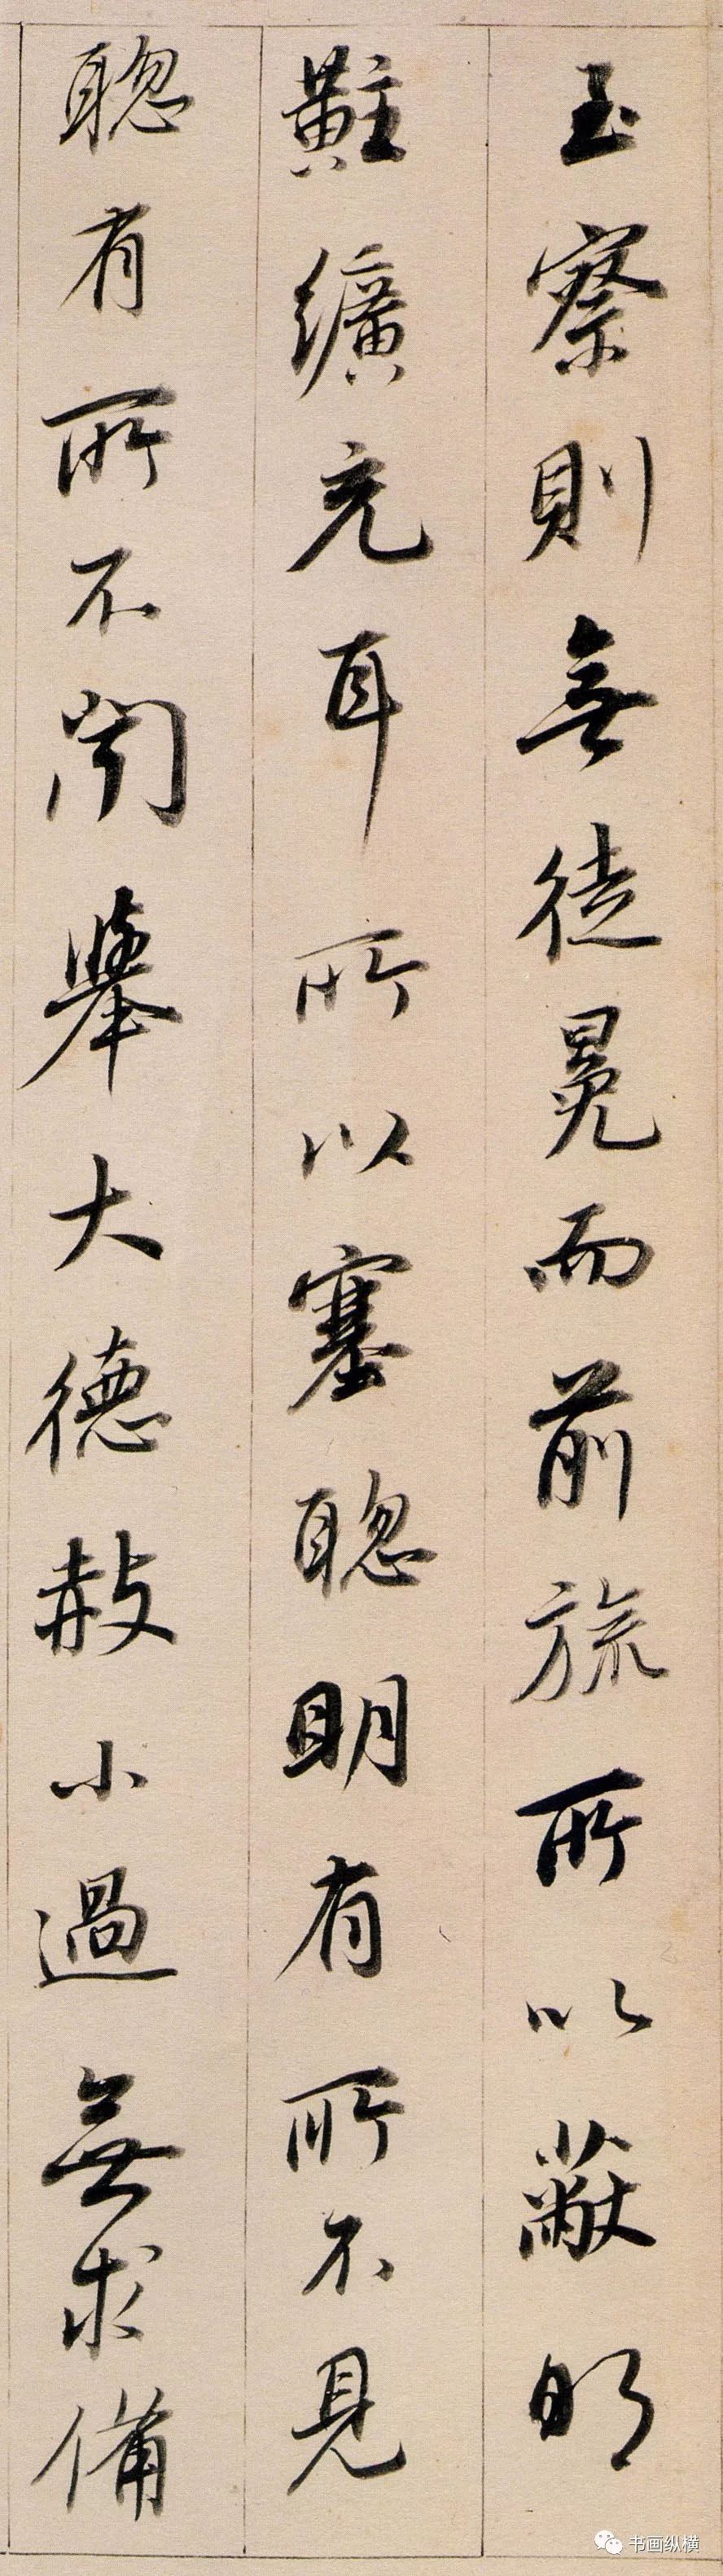 至察則無徒冕而前旒所以蔽明
黈纊充耳所以塞聰明有所不見
聰有所不聞舉大德赦小過無求備
书画纵横